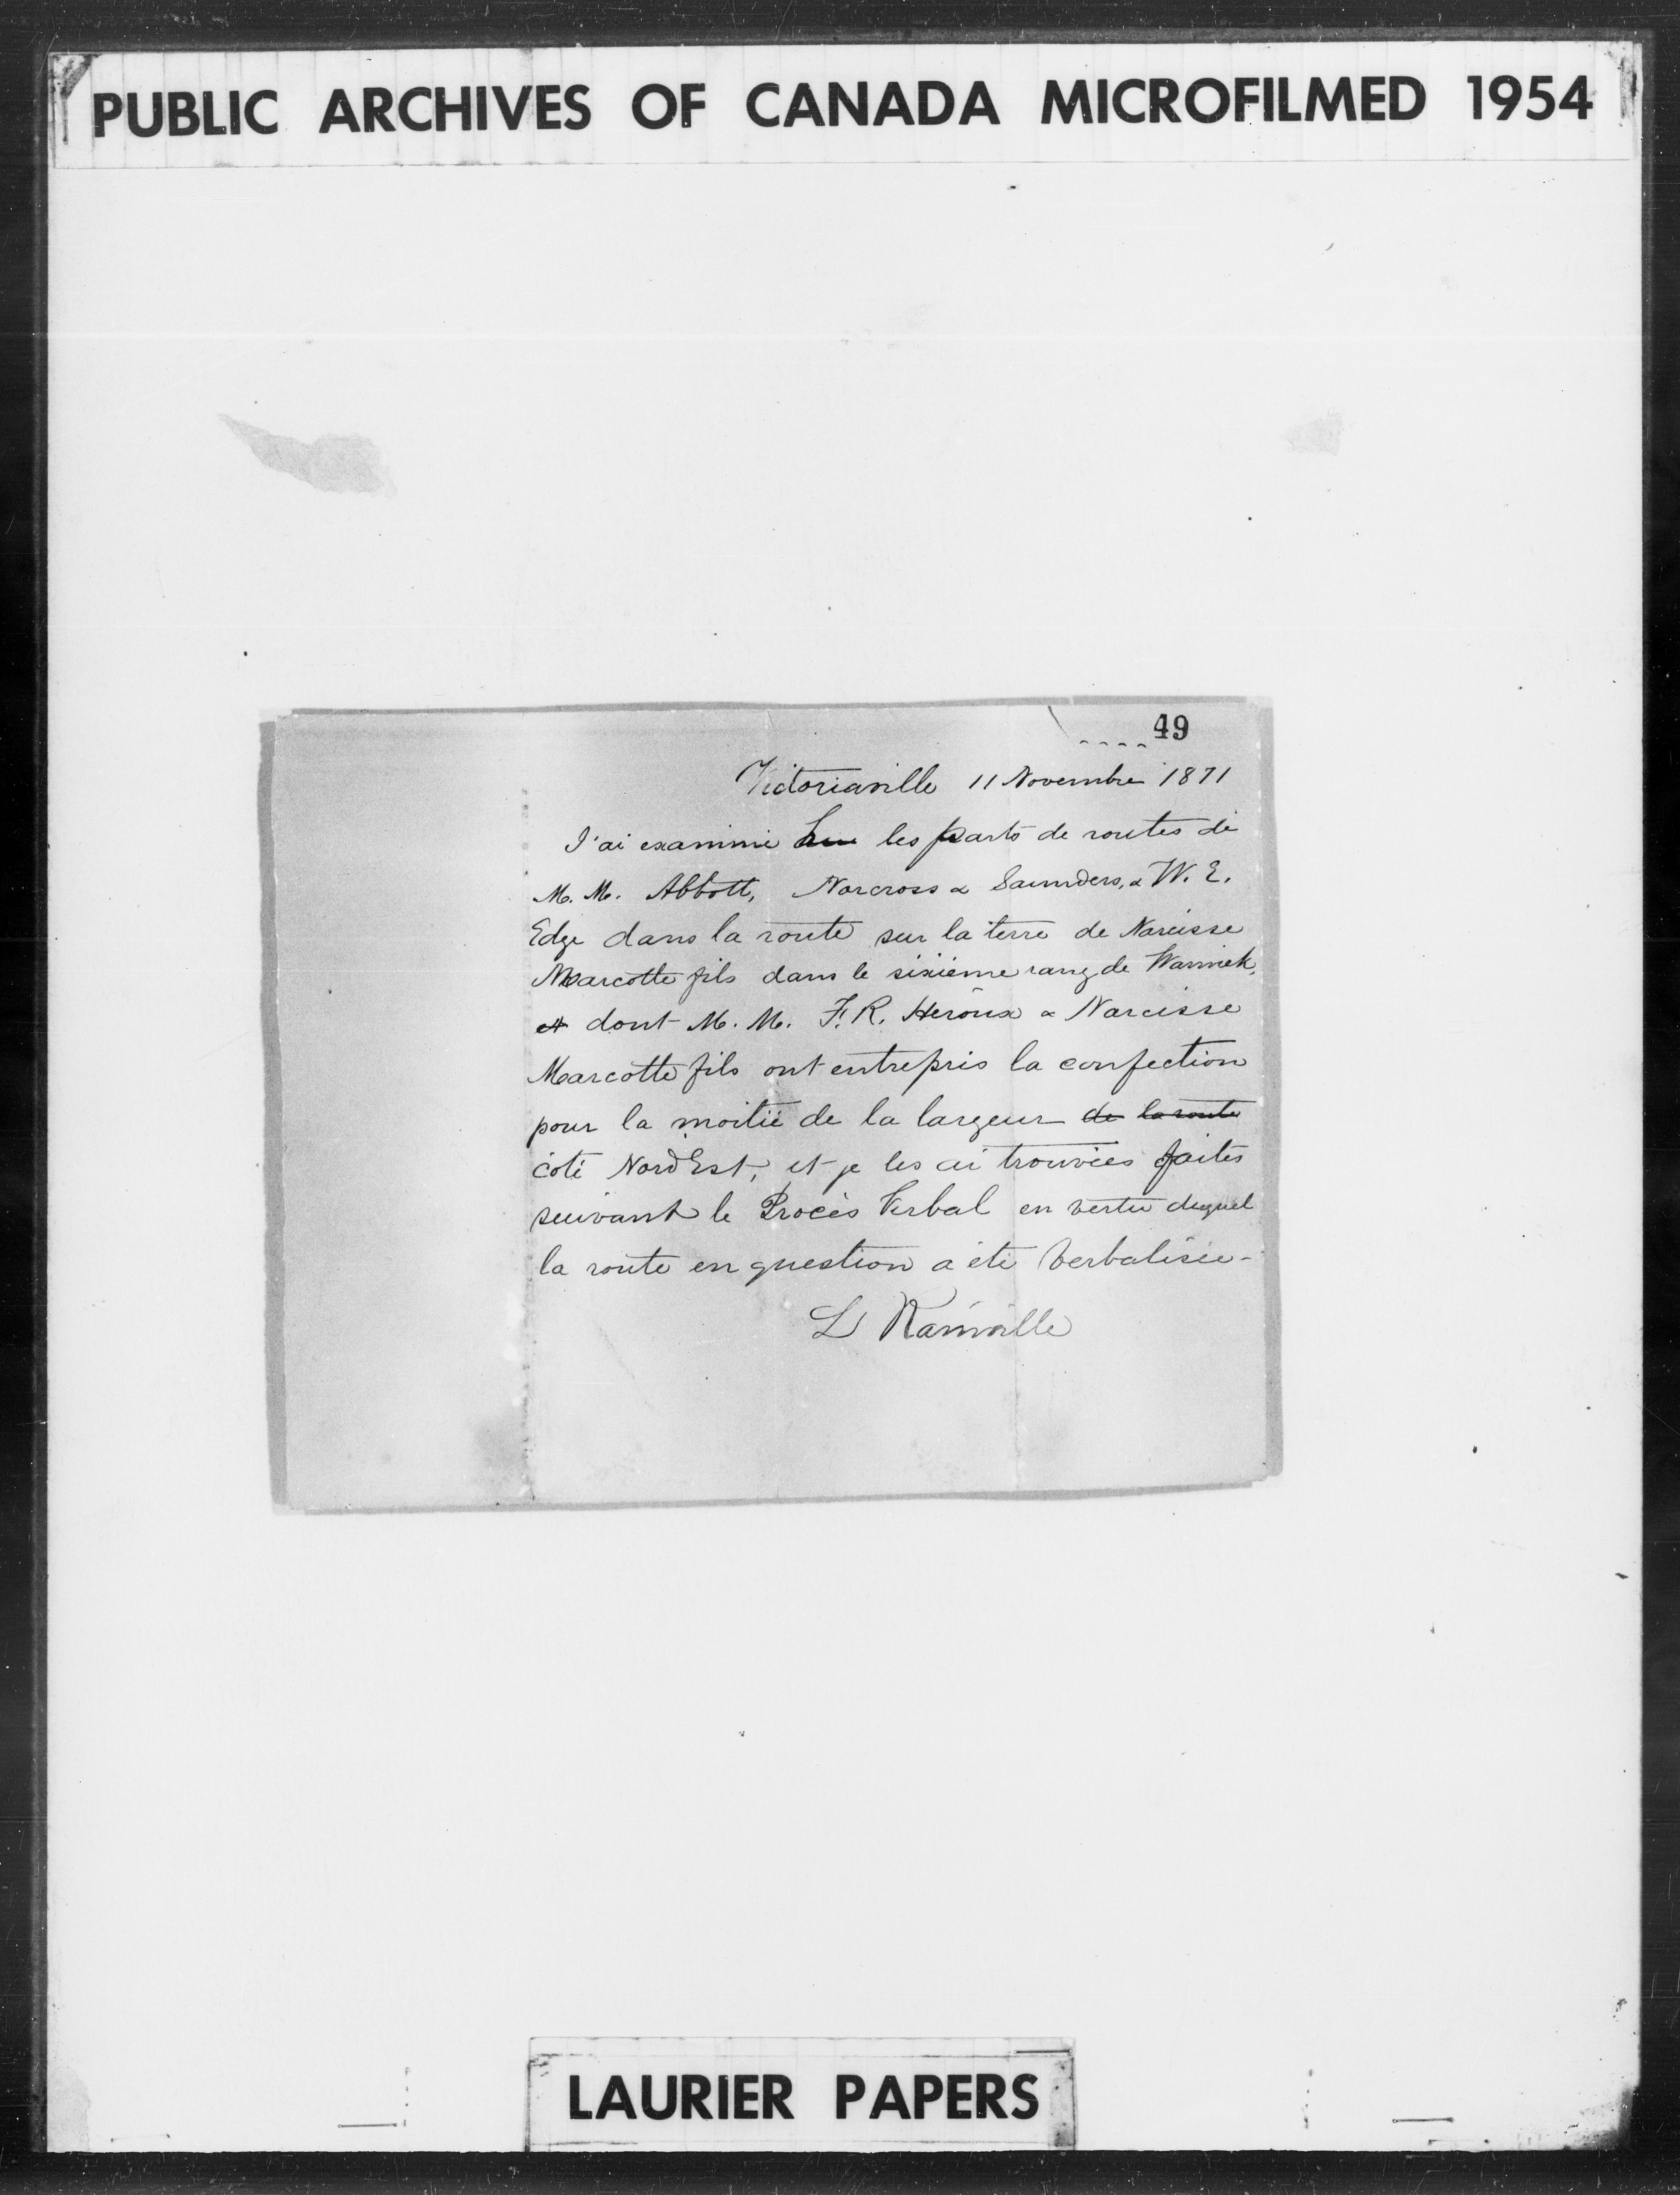 PUBLIC ARCHIVES OF CANADA MICROFILMED 1954
49
Victoriaville 11 Novembre 1871
J'ai examiné les parts de routes de
M. M. Abbott, Norcross & Saunders, & W. E.
Edge dans la route sur la terre de Narcisse
Marcotte fils dans le sixième rang de Warwick,
et dont M. M. F. R. Héroux & Narcisse
Marcotte fils ont entrepris la confection
pour la moitié de la largeur de la route
coté Nord Est, et je les ai trouvées faites
suivant le Procès Verbal en vertu duquel
la route en question a été verbalisée -
L Rainville
LAURIER PAPERS